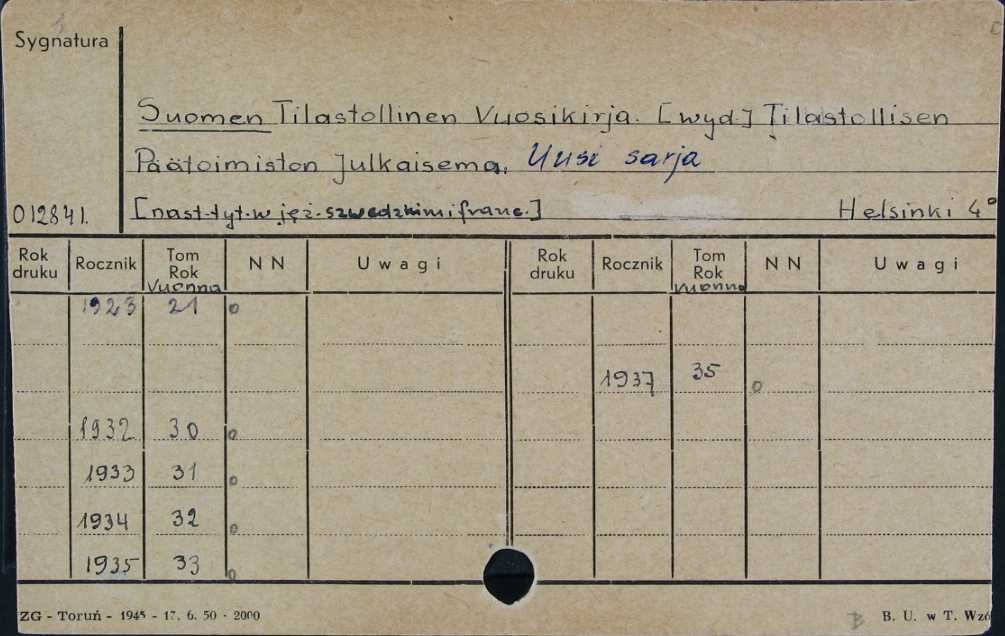 Sygnatura
Suomen Tilastollinen Vuosikirja. [wyd.] Tilastollisen
Päätoimiston Julkaisema. Uusi sarja
012841. [nast. tyt. w jęz. szwedzkim i franc.] Helsinki 4°
Rok druku Rocznik Tom Rok Vuonna N N Uwagi Rok druku Rocznik Tom Rok Vuonna N N Uwagi
1923 21 o
1937 35 o
1932 30 o
1933 31 o
1934 32 o
1935 33 o
ZG - Toruń - 1945 - 17. 6. 50 - 2000 B. U. w T. Wzó